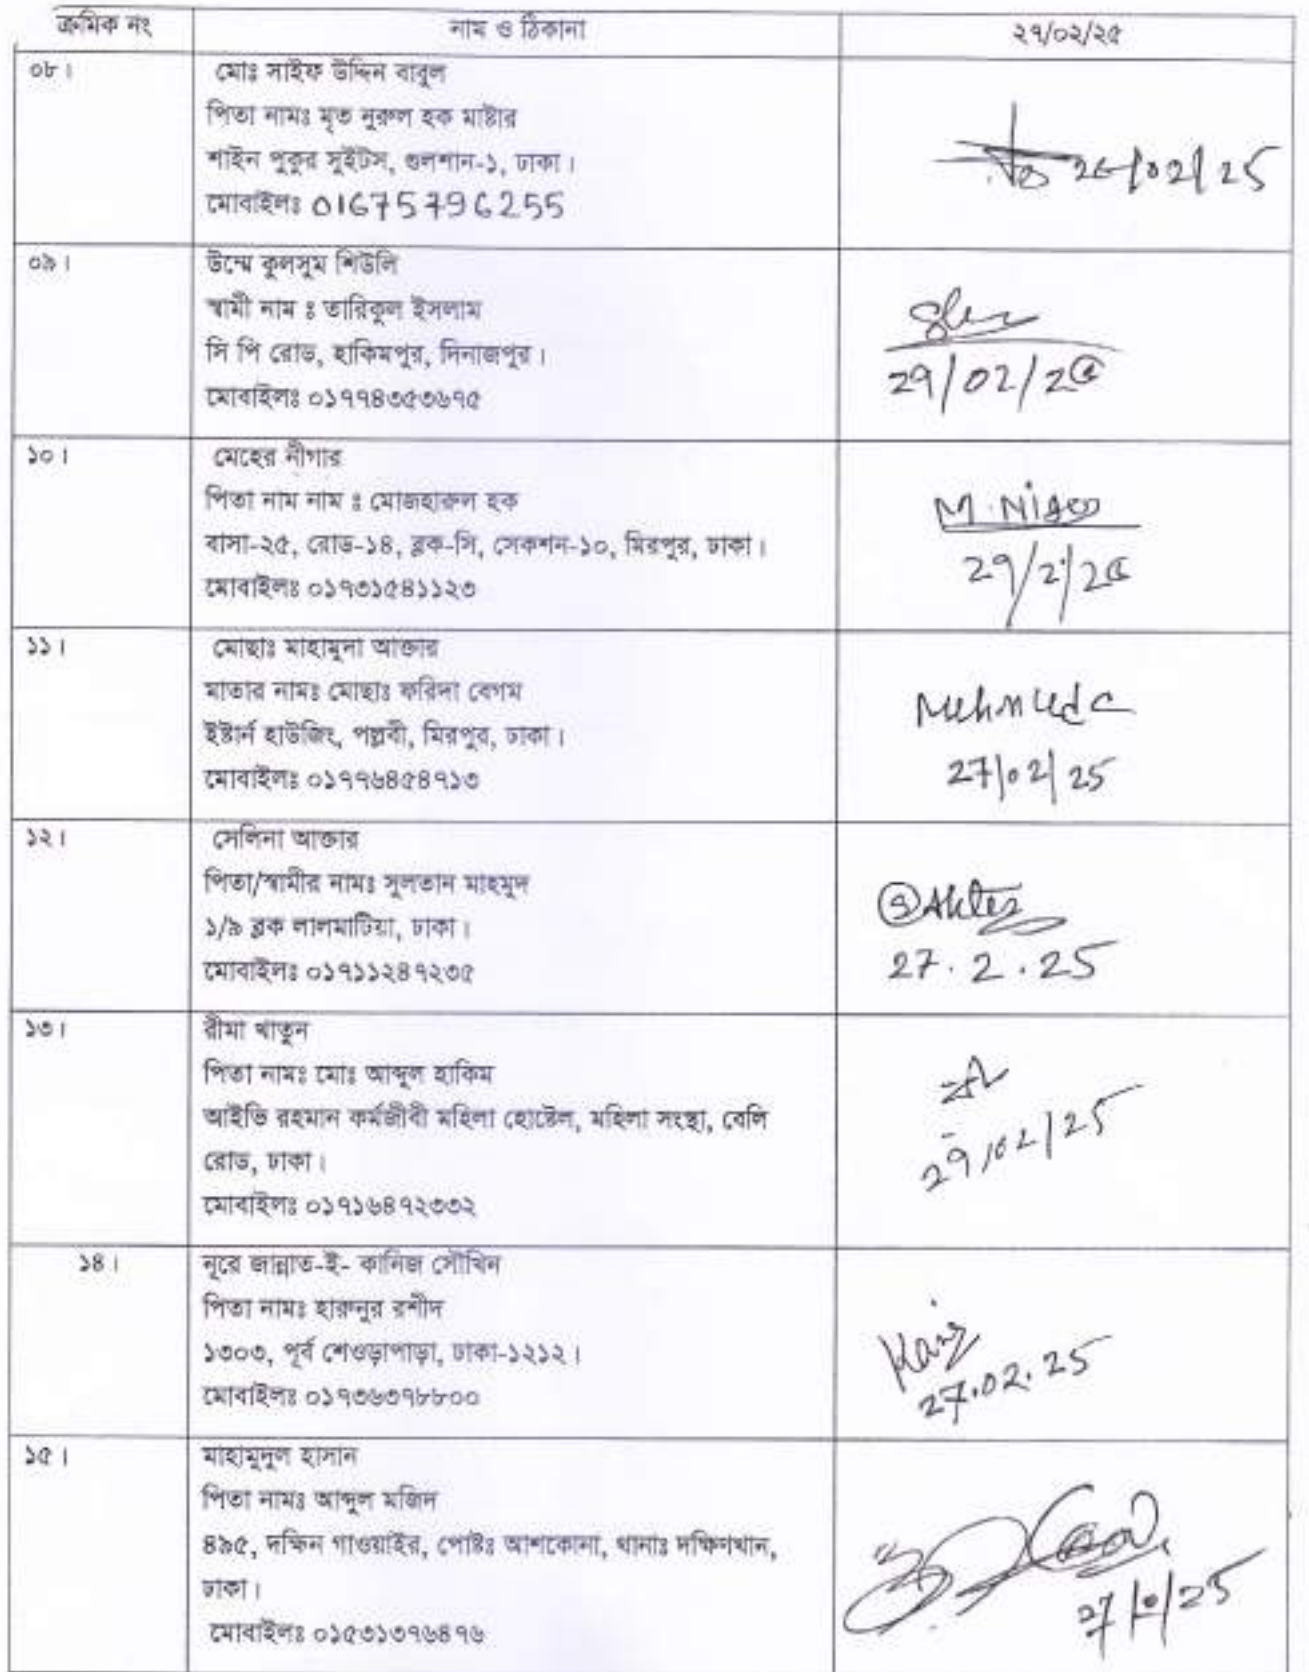 ক্রমিক নং
নাম ও ঠিকানা
২৭/০২/২৫
০৮।
মোঃ সাইফ উদ্দিন বাবুল
পিতা নামঃ মৃত নুরুল হক মাষ্টার
শাইন পুকুর সুইটস, গুলশান-১, ঢাকা।
মোবাইলঃ 01675796255
02/25
০৯।
উম্মে কুলসুম শিউলি
স্বামী নাম ঃ তারিকুল ইসলাম
সি পি রোড, হাকিমপুর, দিনাজপুর।
মোবাইলঃ ০১৭৭৪৩৫৩৬৭৫
২৭/০২/২৫
১০।
মেহের নীগার
পিতা নাম নাম ঃ মোজহারুল হক
বাসা-২৫, রোড-১৪, ব্লক-সি, সেকশন-১০, মিরপুর, ঢাকা।
মোবাইলঃ ০১৭৩১৫৪১১২৩
M. Nigar
২৭/২/২৫
১১।
মোছাঃ মাহামুদা আক্তার
মাতার নামঃ মোছাঃ ফরিদা বেগম
ইষ্টার্ন হাউজিং, পল্লবী, মিরপুর, ঢাকা।
মোবাইলঃ ০১৭৭৬৪৫৪৭১৩
Mehmuda
27/02/25
১২।
সেলিনা আক্তার
পিতা/স্বামীর নামঃ সুলতান মাহমুদ
১/৯ ব্লক লালমাটিয়া, ঢাকা।
মোবাইলঃ ০১৭১১২৪৭২৩৫
SAkter
27.2.25
১৩।
রীমা খাতুন
পিতা নামঃ মোঃ আব্দুল হাকিম
আইভি রহমান কর্মজীবী মহিলা হোষ্টেল, মহিলা সংস্থা, বেলি
রোড, ঢাকা।
মোবাইলঃ ০১৭১৬৪৭২৩৩২
২৭/02/25
১৪।
নূরে জান্নাত-ই- কানিজ সৌখিন
পিতা নামঃ হারুনুর রশীদ
১৩০৩, পূর্ব শেওড়াপাড়া, ঢাকা-১২১২।
মোবাইলঃ ০১৭৩৬৩৭৮৮০০
Kaniz
27.02.25
১৫।
মাহামুদুল হাসান
পিতা নামঃ আব্দুল মজিদ
৪৯৫, দক্ষিন গাওয়াইর, পোষ্টঃ আশকোনা, থানাঃ দক্ষিণখান,
ঢাকা।
মোবাইলঃ ০১৫৩১৩৭৬৪৭৬